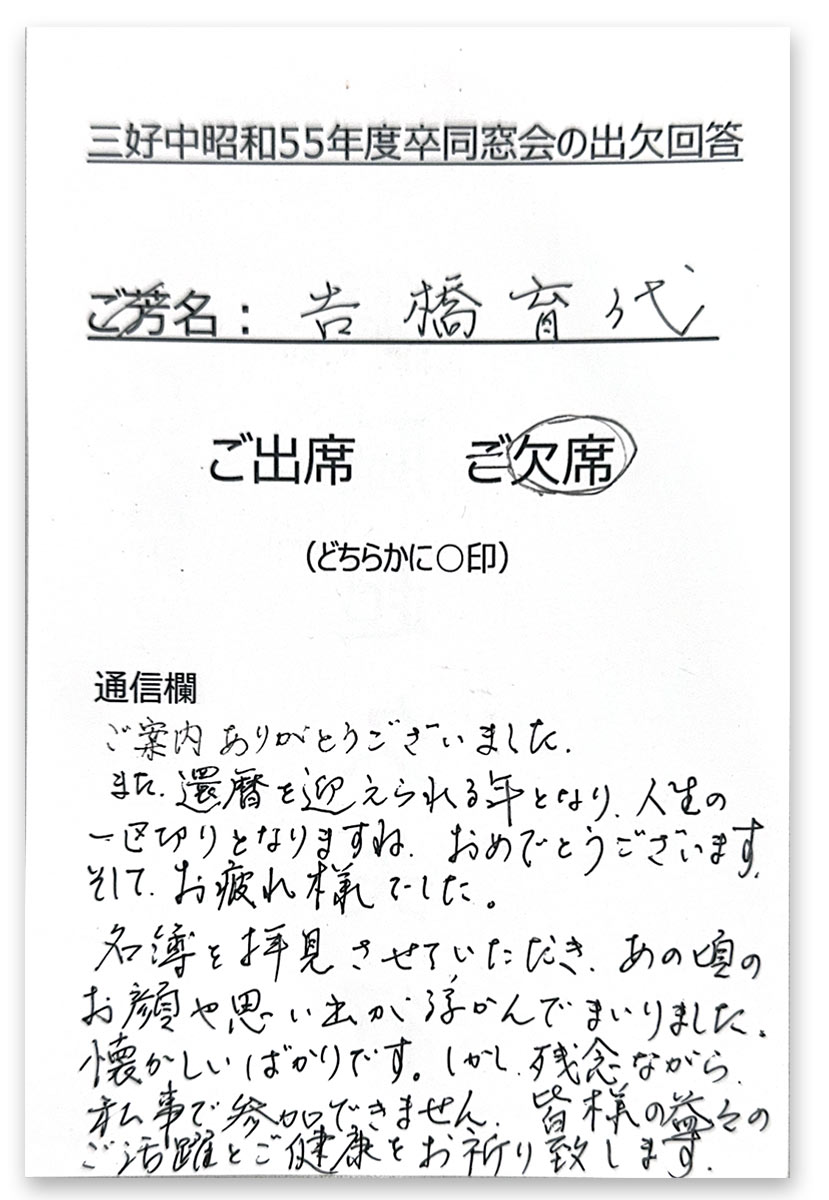 三好中昭和55年度卒同窓会の出欠回答
ご芳名： 吉橋育代
ご出席 ご欠席
（どちらかに○印）
通信欄
ご案内ありがとうございました.
また.還暦を迎えられる年となり.人生の
一区切りとなりますね.おめでとうございます.
そして.お疲れ様でした。
名簿を拝見させていただき.あの頃の
お顔や思い出が浮かんでまいりました.
懐かしいばかりです。しかし.残念ながら.
私事で参加できません.皆様の益々の
ご活躍とご健康をお祈り致します.